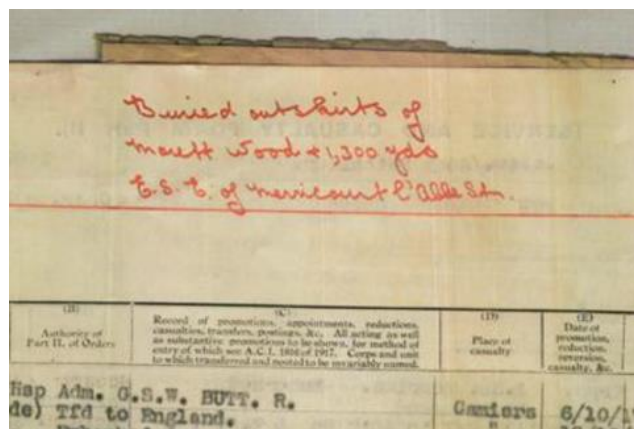 Buried outskirts of
Moreff Wood & 1,300 yds
E.S.E. of Mericourt l'Abbe Stn.
(B)
Authority of
Part II. of Orders
(C)
Record of promotions, appointments, reductions,
casualties, transfers, postings, &c. All acting as well
as substantive promotions to be shown, for method of
entry of which see A.C.I. 1816 of 1917. Corps and unit
to which transferred and posted to be invariably named.
(D)
Place of
casualty
(E)
Date of
promotion,
reduction,
reversion,
casualty, &c.
Hsp Adm. G.S.W. BUTT. R.
Camiers
6/10/1
de) Tfd to England.
"